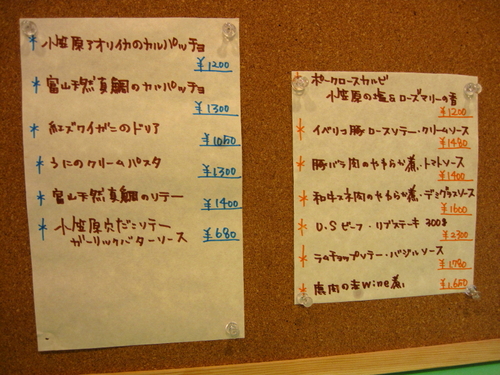 * 小笠原アオリイカのカルパッチョ
¥1200
* 富山天然真鯛のカルパッチョ
¥1300
* 紅ズワイガニのドリア
¥1050
* うにのクリームパスタ
¥1300
* 富山天然真鯛のソテー
¥1400
* 小笠原穴だこソテー
ガーリックバターソース
¥680
* ポークロースカルビ
小笠原の塩&ローズマリーの香
¥1200
* イベリコ豚ロースソテー・クリームソース
¥1480
* 豚バラ肉のやわらか煮・トマトソース
¥1400
* 和牛スネ肉のやわらか煮・デミグラスソース
¥1600
* U.Sビーフ・リブステーキ 300g
¥2300
* ラムチョップソテー・バジルソース
¥1780
* 鹿肉の赤wine煮
¥1,650